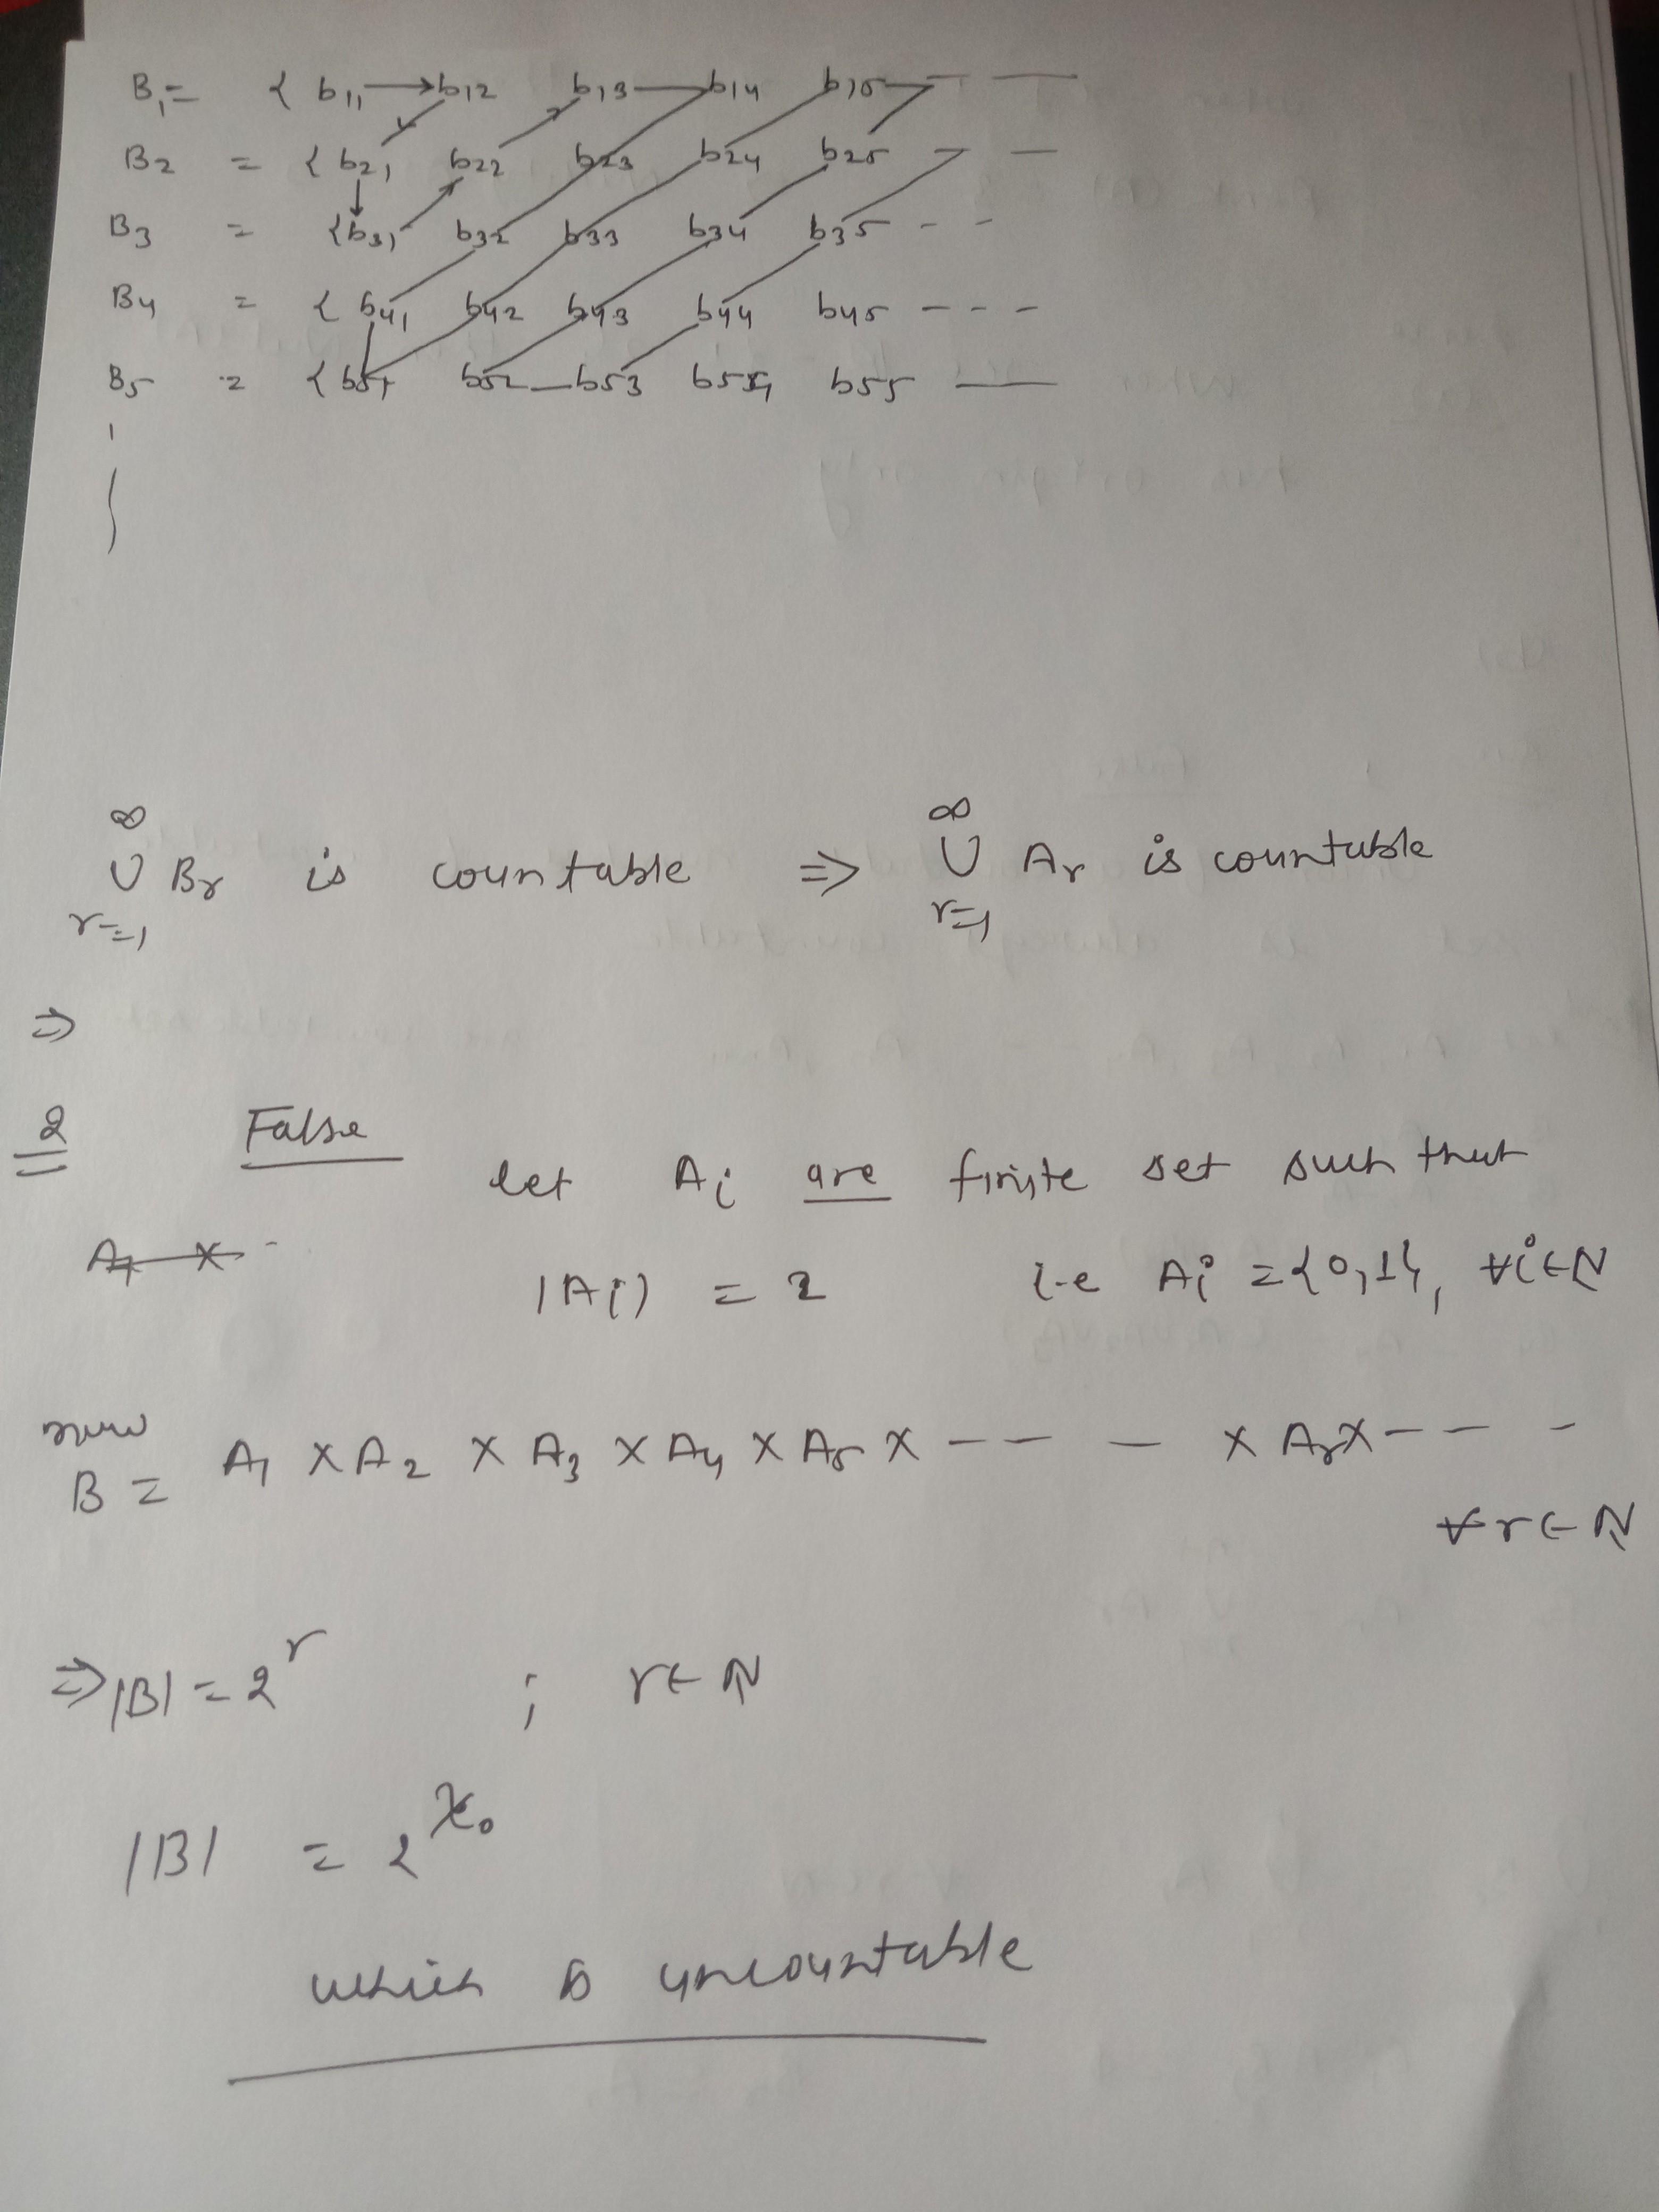 B₁ = { b₁₁ → b₁₂ b₁₃ b₁₄ b₁₅ — —
B₂ = { b₂₁ b₂₂ b₂₃ b₂₄ b₂₅ — —
B₃ = { b₃₁ b₃₂ b₃₃ b₃₄ b₃₅ - -
B₄ = { b₄₁ b₄₂ b₄₃ b₄₄ b₄₅ - - -
B₅ = { b₅₁ b₅₂ b₅₃ b₅₄ b₅₅ —
∞ ∞
∪ Br is countable ⇒ ∪ Ar is countable
r=1 r=1
⇒
2 False
let Ai are finite set such that
|Ai| = 2 i.e Ai = {0,1}, ∀i∈N
now
B = A₁ × A₂ × A₃ × A₄ × A₅ × - - - × Ar × - - -
∀ r ∈ N
⇒ |B| = 2^r ; r ∈ N
|B| = 2^ℵ₀
which is uncountable